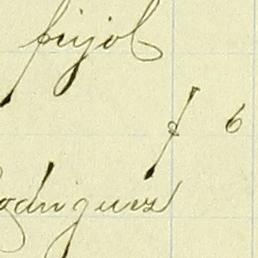 frijol
f 6
Rodriguez